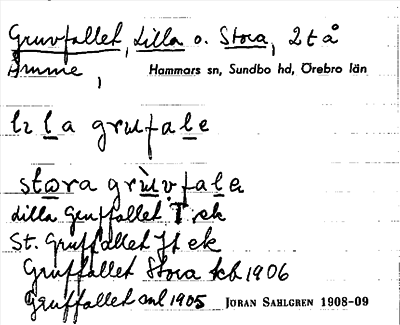 Gruvfallet, Lilla o. Stora, 2 t å
Åmme,
Hammars sn, Sundbo hd, Örebro län
lıla grufale
stora gruvfale
Lilla Gruffallet Jt ek
St. Gruffallet Jt ek
Gruffallet Stora kb 1906
Gruffallet ml 1905
JÖRAN SAHLGREN 1908-09